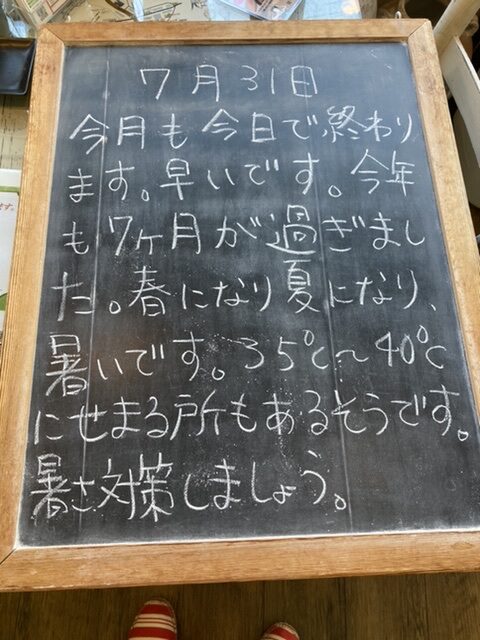 7月31日
今月も今日で終わり
ます。早いです。今年
も7ヶ月が過ぎまし
た。春になり夏になり、
暑いです。35℃〜40℃
にせまる所もあるそうです。
暑さ対策しましょう。